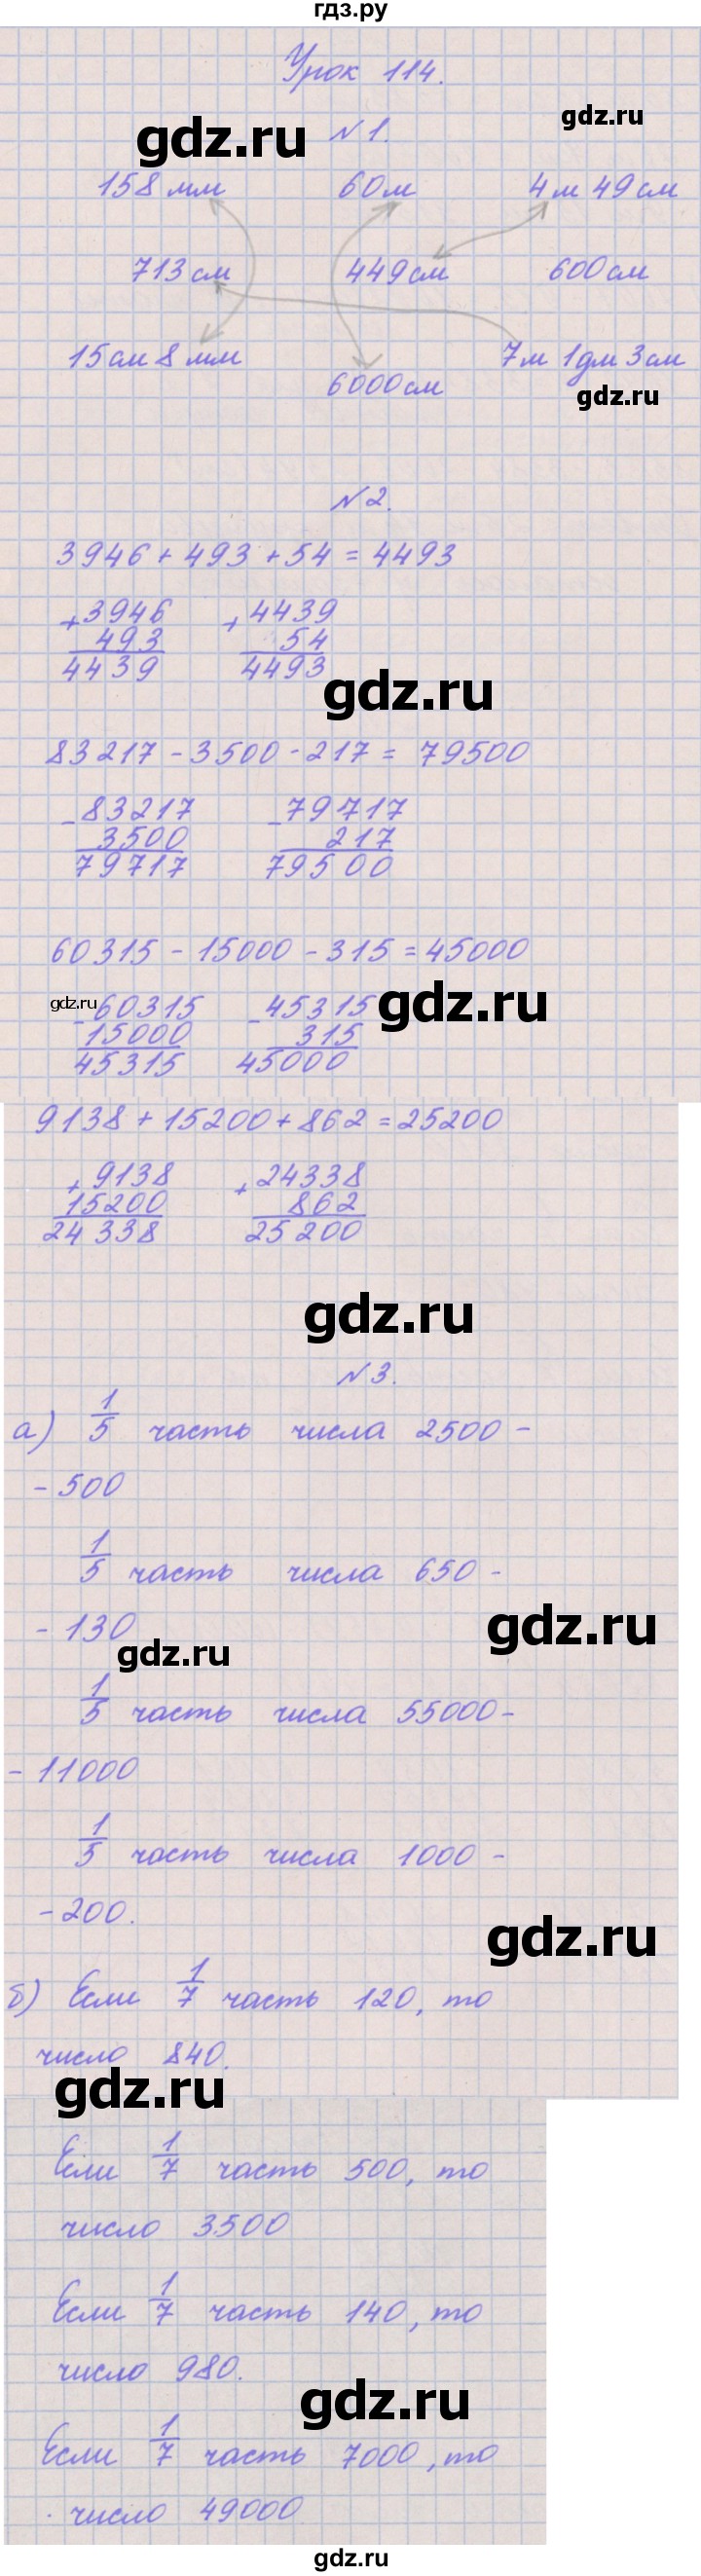 гдз.ру
Урок 114.
gdz.ru
№1.
gdz.ru
158 мм 60 м 4 м 49 см
713 см 449 см 600 см
15 см 8 мм 6000 см 7 м 1 дм 3 см
gdz.ru
№2.
3946 + 493 + 54 = 4493
+ 3946 + 4439
493 54
4439 4493
gdz.ru
83217 - 3500 - 217 = 79500
- 83217 - 79717
3500 217
79717 79500
60315 - 15000 - 315 = 45000
gdz.ru
gdz.ru
- 60315 - 45315
15000 315
45315 45000
9138 + 15200 + 862 = 25200
+ 9138 + 24338
15200 862
24338 25200
gdz.ru
№3.
а) 1/5 часть числа 2500 -
- 500
1/5 часть числа 650 -
- 130
gdz.ru
gdz.ru
1/5 часть числа 55000 -
- 11000
1/5 часть числа 1000 -
- 200.
gdz.ru
б) Если 1/7 часть 120, то
число 840.
gdz.ru
Если 1/7 часть 500, то
число 3500
Если 1/7 часть 140, то
число 980.
gdz.ru
Если 1/7 часть 7000, то
число 49000
gdz.ru